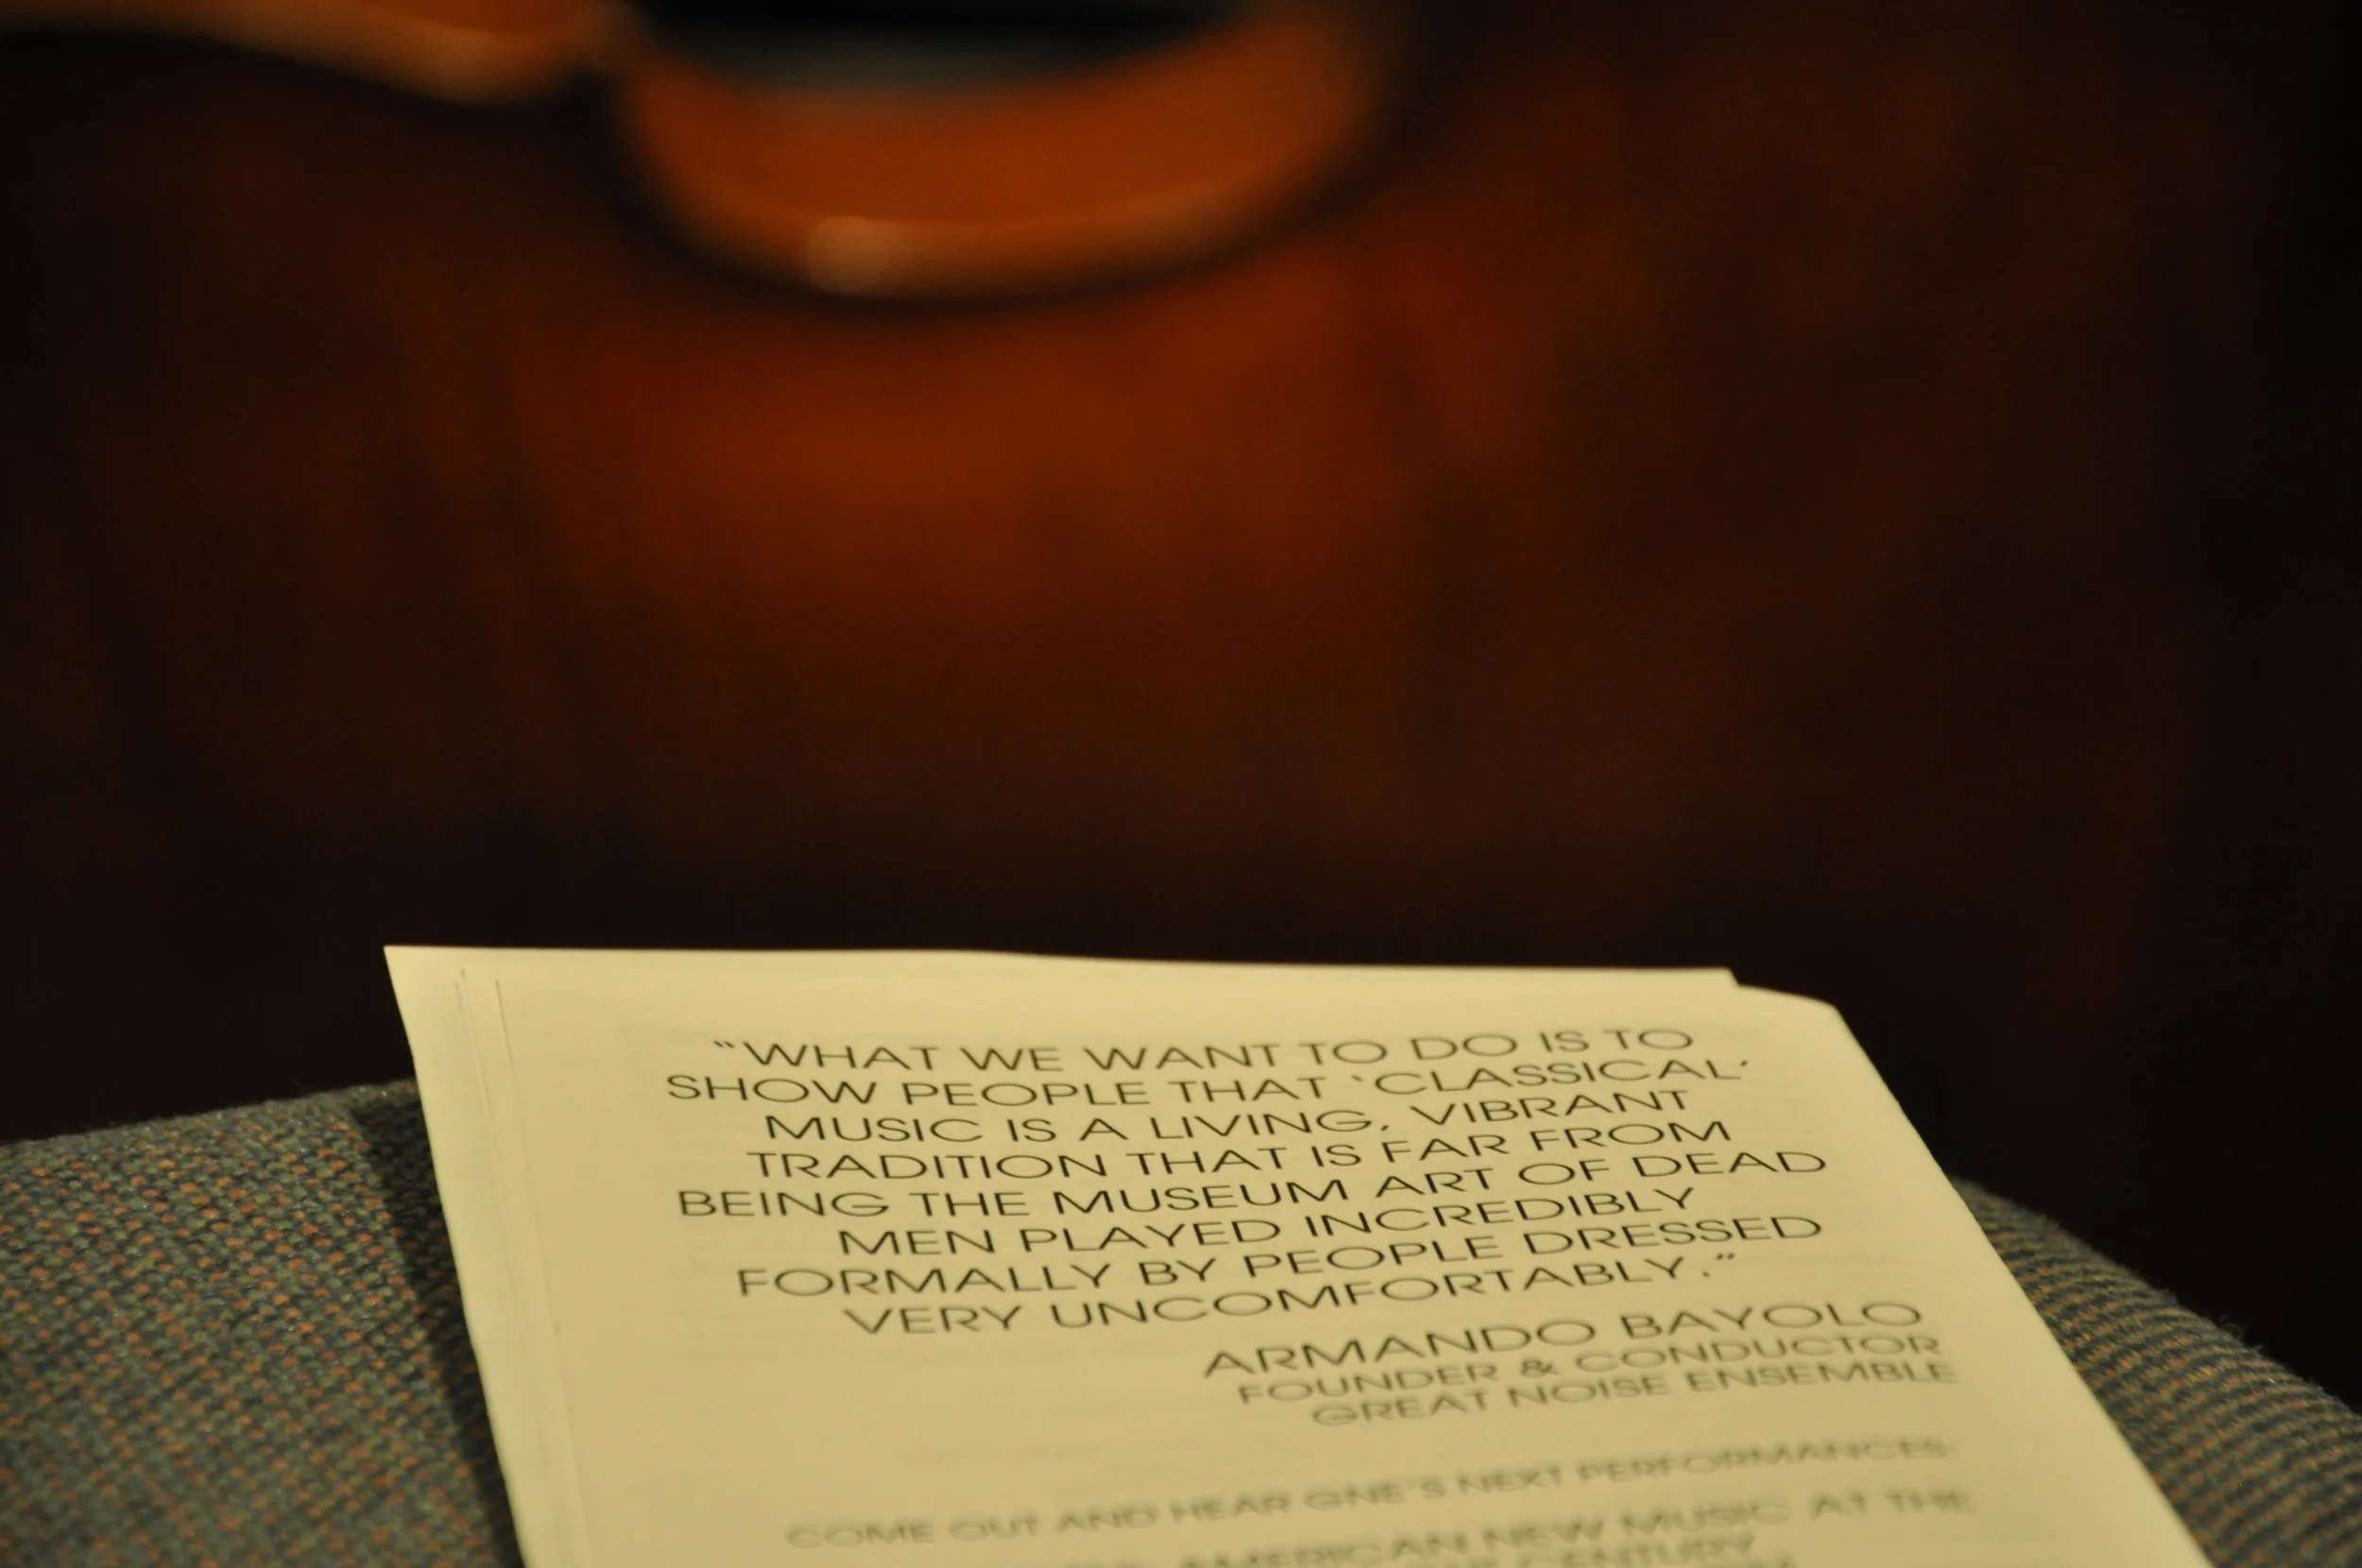 “WHAT WE WANT TO DO IS TO
SHOW PEOPLE THAT ‘CLASSICAL’
MUSIC IS A LIVING, VIBRANT
TRADITION THAT IS FAR FROM
BEING THE MUSEUM ART OF DEAD
MEN PLAYED INCREDIBLY
FORMALLY BY PEOPLE DRESSED
VERY UNCOMFORTABLY.”
ARMANDO BAYOLO
FOUNDER & CONDUCTOR
GREAT NOISE ENSEMBLE
COME OUT AND HEAR GNE'S NEXT PERFORMANCES:
AMERICAN NEW MUSIC AT THE
CENTURY